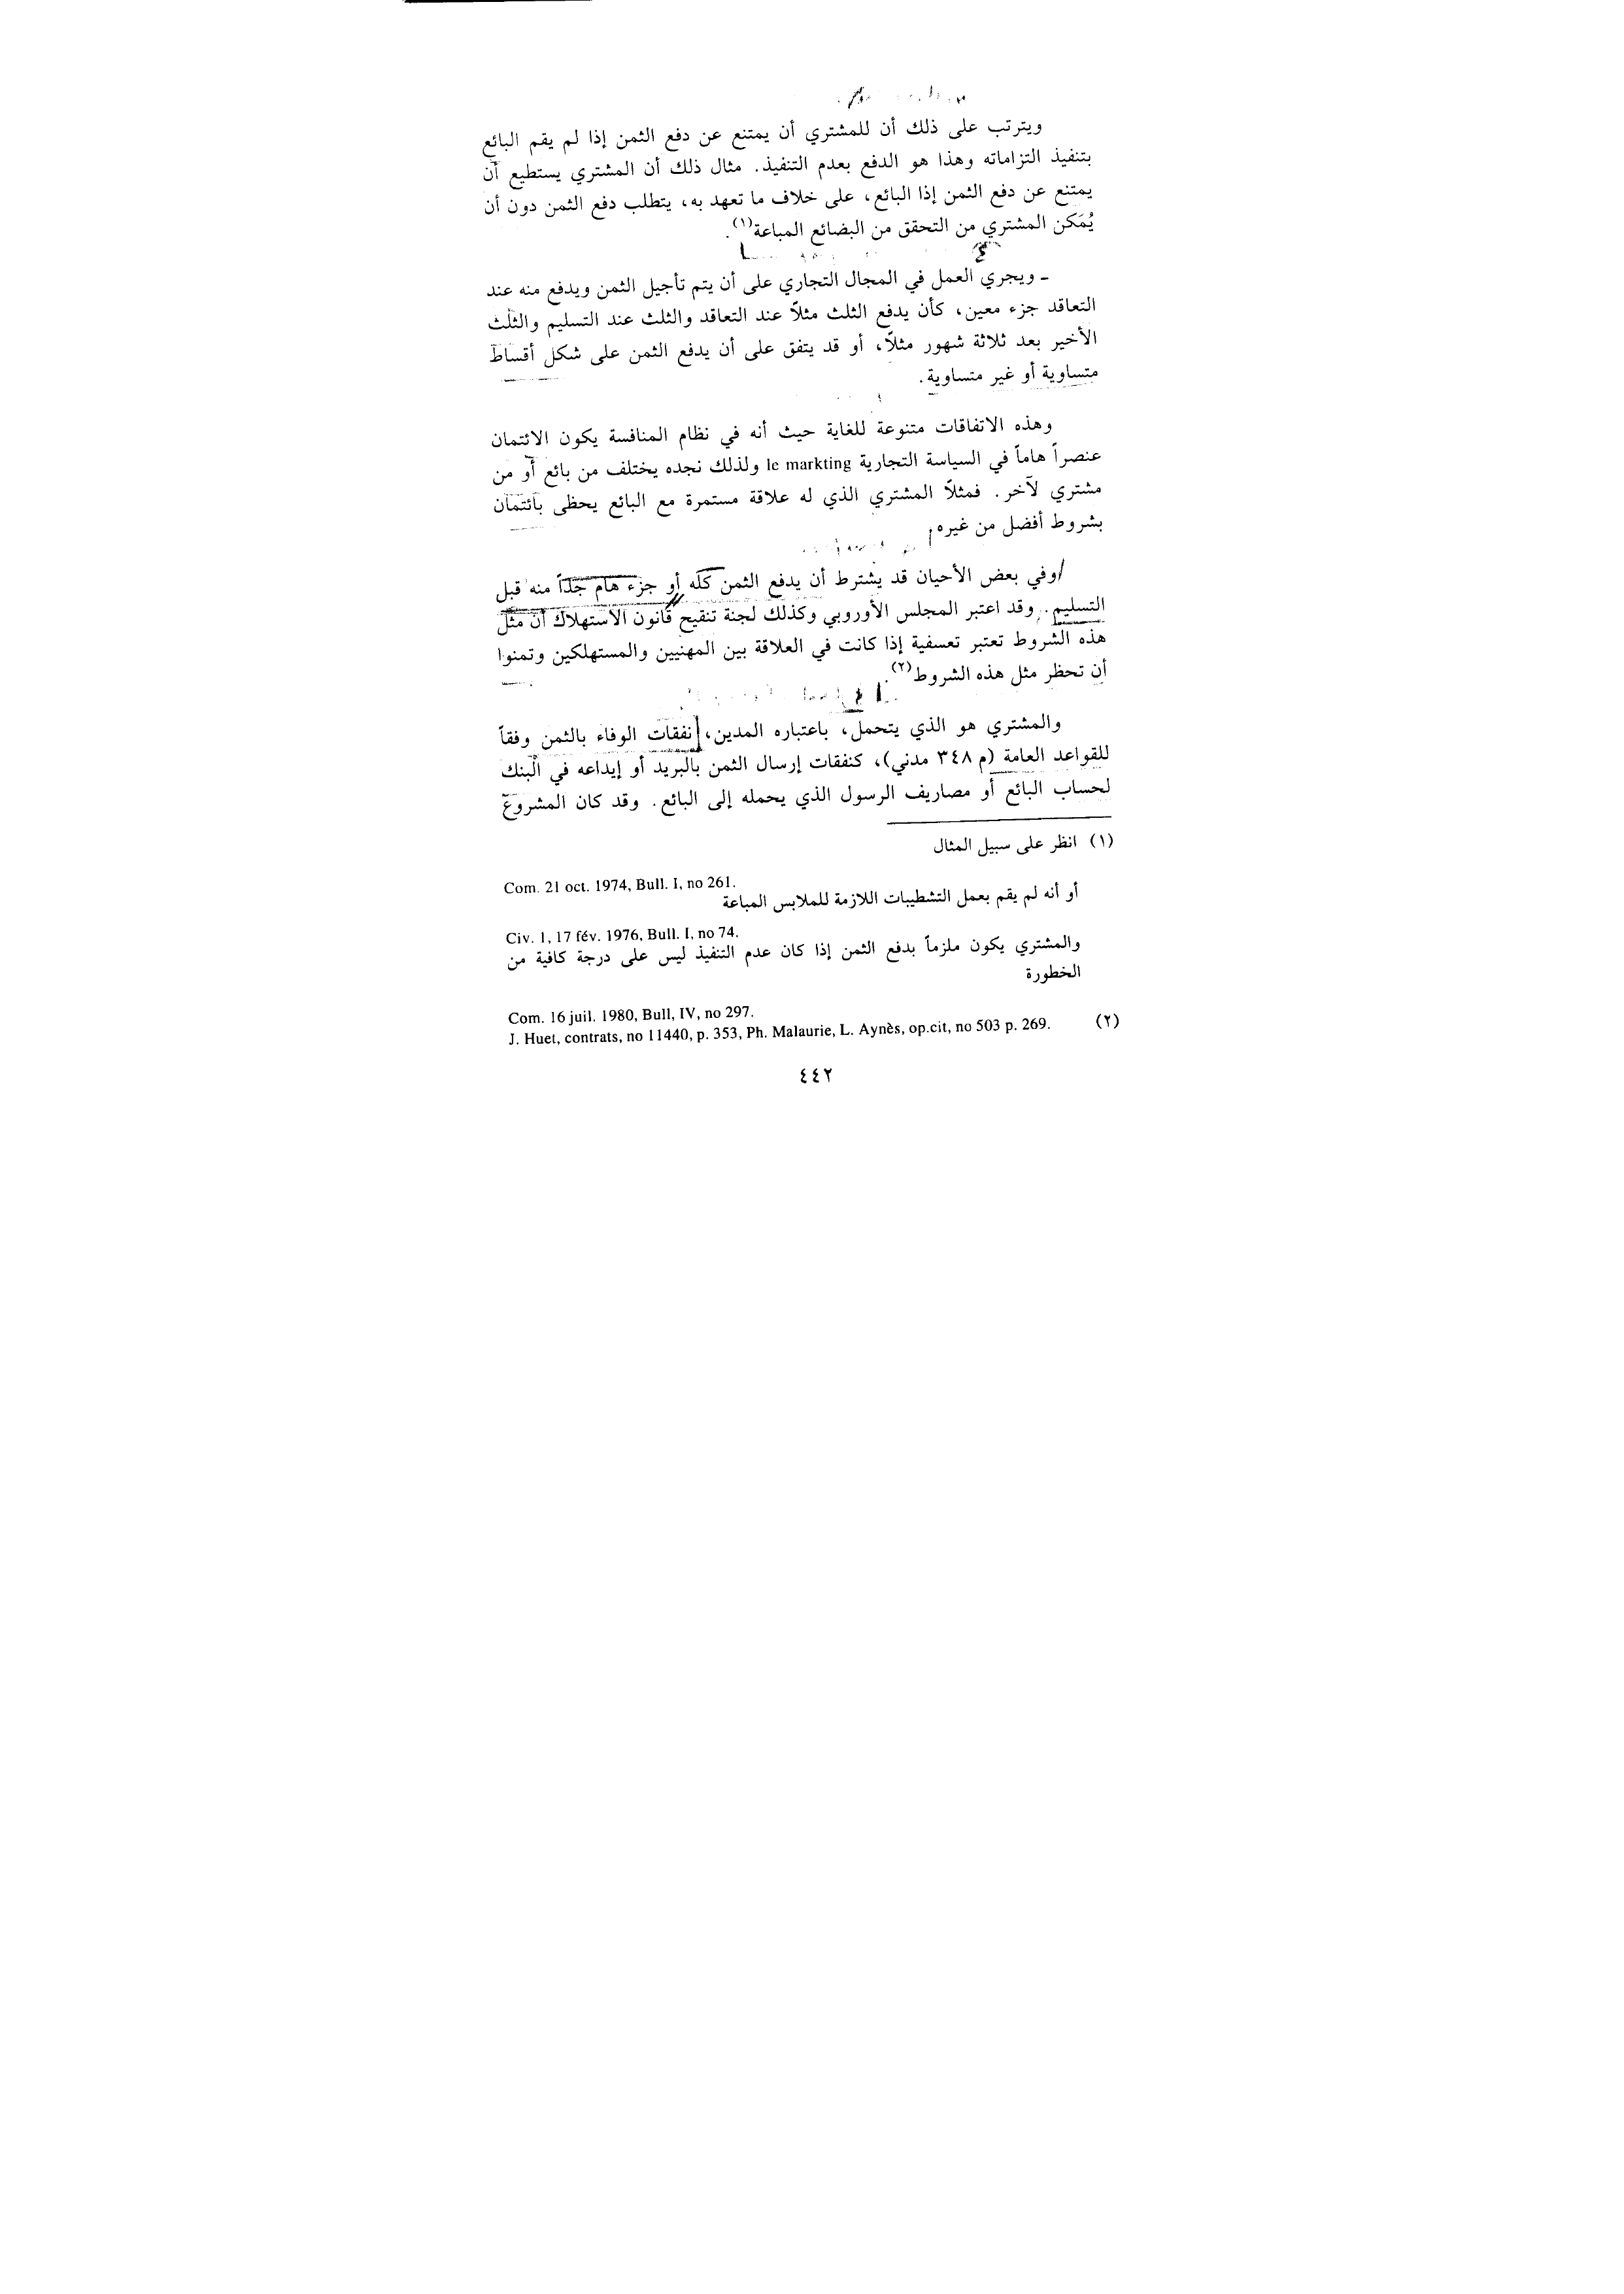 ويترتب على ذلك أن للمشتري أن يمتنع عن دفع الثمن إذا لم يقم البائع
بتنفيذ التزاماته وهذا هو الدفع بعدم التنفيذ. مثال ذلك أن المشتري يستطيع أن
يمتنع عن دفع الثمن إذا البائع، على خلاف ما تعهد به، يتطلب دفع الثمن دون أن
يُمَكن المشتري من التحقق من البضائع المباعة(١).
ـ ويجري العمل في المجال التجاري على أن يتم تأجيل الثمن ويدفع منه عند
التعاقد جزء معين، كأن يدفع الثلث مثلاً عند التعاقد والثلث عند التسليم والثلث
الأخير بعد ثلاثة شهور مثلاً، أو قد يتفق على أن يدفع الثمن على شكل أقساط
متساوية أو غير متساوية.
وهذه الاتفاقات متنوعة للغاية حيث أنه في نظام المنافسة يكون الائتمان
عنصراً هاماً في السياسة التجارية le markting ولذلك نجده يختلف من بائع أو من
مشتري لآخر. فمثلاً المشتري الذي له علاقة مستمرة مع البائع يحظى بائتمان
بشروط أفضل من غيره.
وفي بعض الأحيان قد يشترط أن يدفع الثمن كله أو جزء هام جداً منه قبل
التسليم. وقد اعتبر المجلس الأوروبي وكذلك لجنة تنقيح قانون الاستهلاك أن مثل
هذه الشروط تعتبر تعسفية إذا كانت في العلاقة بين المهنيين والمستهلكين وتمنوا
أن تحظر مثل هذه الشروط(٢).
والمشتري هو الذي يتحمل، باعتباره المدين، نفقات الوفاء بالثمن وفقاً
للقواعد العامة (م ٣٤٨ مدني)، كنفقات إرسال الثمن بالبريد أو إيداعه في البنك
لحساب البائع أو مصاريف الرسول الذي يحمله إلى البائع. وقد كان المشروع
(١) انظر على سبيل المثال
Com. 21 oct. 1974, Bull. I, no 261.
أو أنه لم يقم بعمل التشطيبات اللازمة للملابس المباعة
Civ. 1, 17 fév. 1976, Bull. I, no 74.
والمشتري يكون ملزماً بدفع الثمن إذا كان عدم التنفيذ ليس على درجة كافية من
الخطورة
Com. 16 juil. 1980, Bull, IV, no 297.
(٢) J. Huet, contrats, no 11440, p. 353, Ph. Malaurie, L. Aynès, op.cit, no 503 p. 269.
٤٤٢